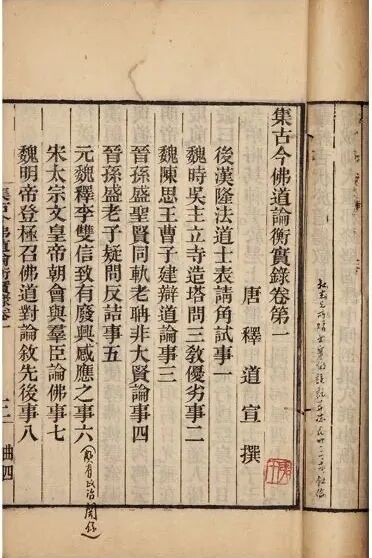 集古今佛道論衡實錄卷第一
唐釋道宣撰
後漢隆法道士表請角試事一
魏時吳主立寺造塔問三敎優劣事二
魏陳思王曹子建辯道論事三
晉孫盛聖賢同軌老聃非大賢論事四
晉孫盛老子疑問反詰事五
元魏釋李雙信致有廢興感應之事六
頗有政治關係
宋太宗文皇帝朝會與羣臣論佛事七
魏明帝登極召佛道對論敘先後事八
集古今佛道論衡實錄卷一
曲四